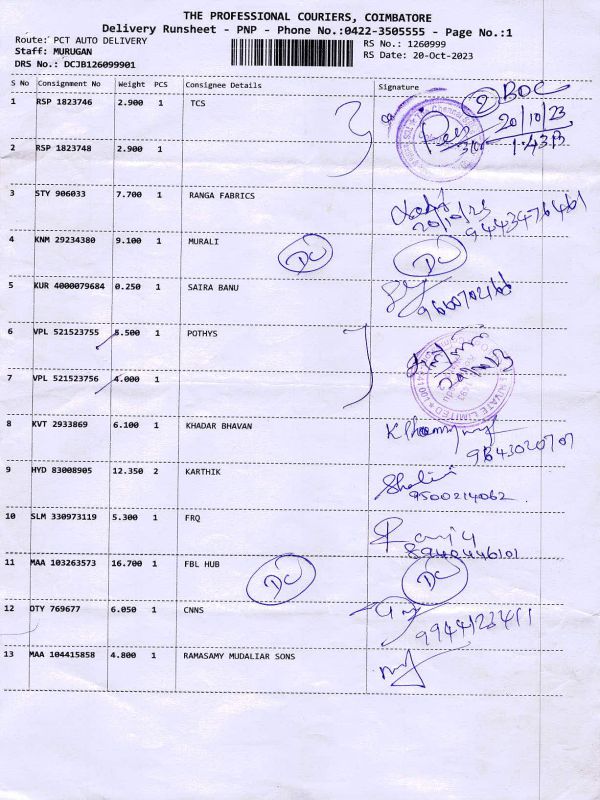 THE PROFESSIONAL COURIERS, COIMBATORE
Delivery Runsheet - PNP - Phone No.:0422-3505555 - Page No.:1
Route: PCT AUTO DELIVERY RS No.: 1260999
Staff: MURUGAN RS Date: 20-Oct-2023
DRS No.: DCJB126099901
S No Consignment No Weight PCS Consignee Details Signature
1 RSP 1823746 2.900 1 TCS 2 BOC
20/10/23
1.43
2 RSP 1823748 2.900 1
3 STY 906033 7.700 1 RANGA FABRICS
20/10/23
9443476461
4 KNM 29234380 9.100 1 MURALI DC DC
5 KUR 4000079684 0.250 1 SAIRA BANU
6 VPL 521523755 5.500 1 POTHYS
7 VPL 521523756 4.000 1
PRIVATE LIMITED
8 KVT 2933869 6.100 1 KHADAR BHAVAN
9843020707
9 HYD 83008905 12.350 2 KARTHIK Shalini
9500214062
10 SLM 330973119 5.300 1 FRQ Ranju
8940446101
11 MAA 103263573 16.700 1 FBL HUB DC DC
12 OTY 769677 6.050 1 CNNS
9944123411
13 MAA 104415858 4.800 1 RAMASAMY MUDALIAR SONS